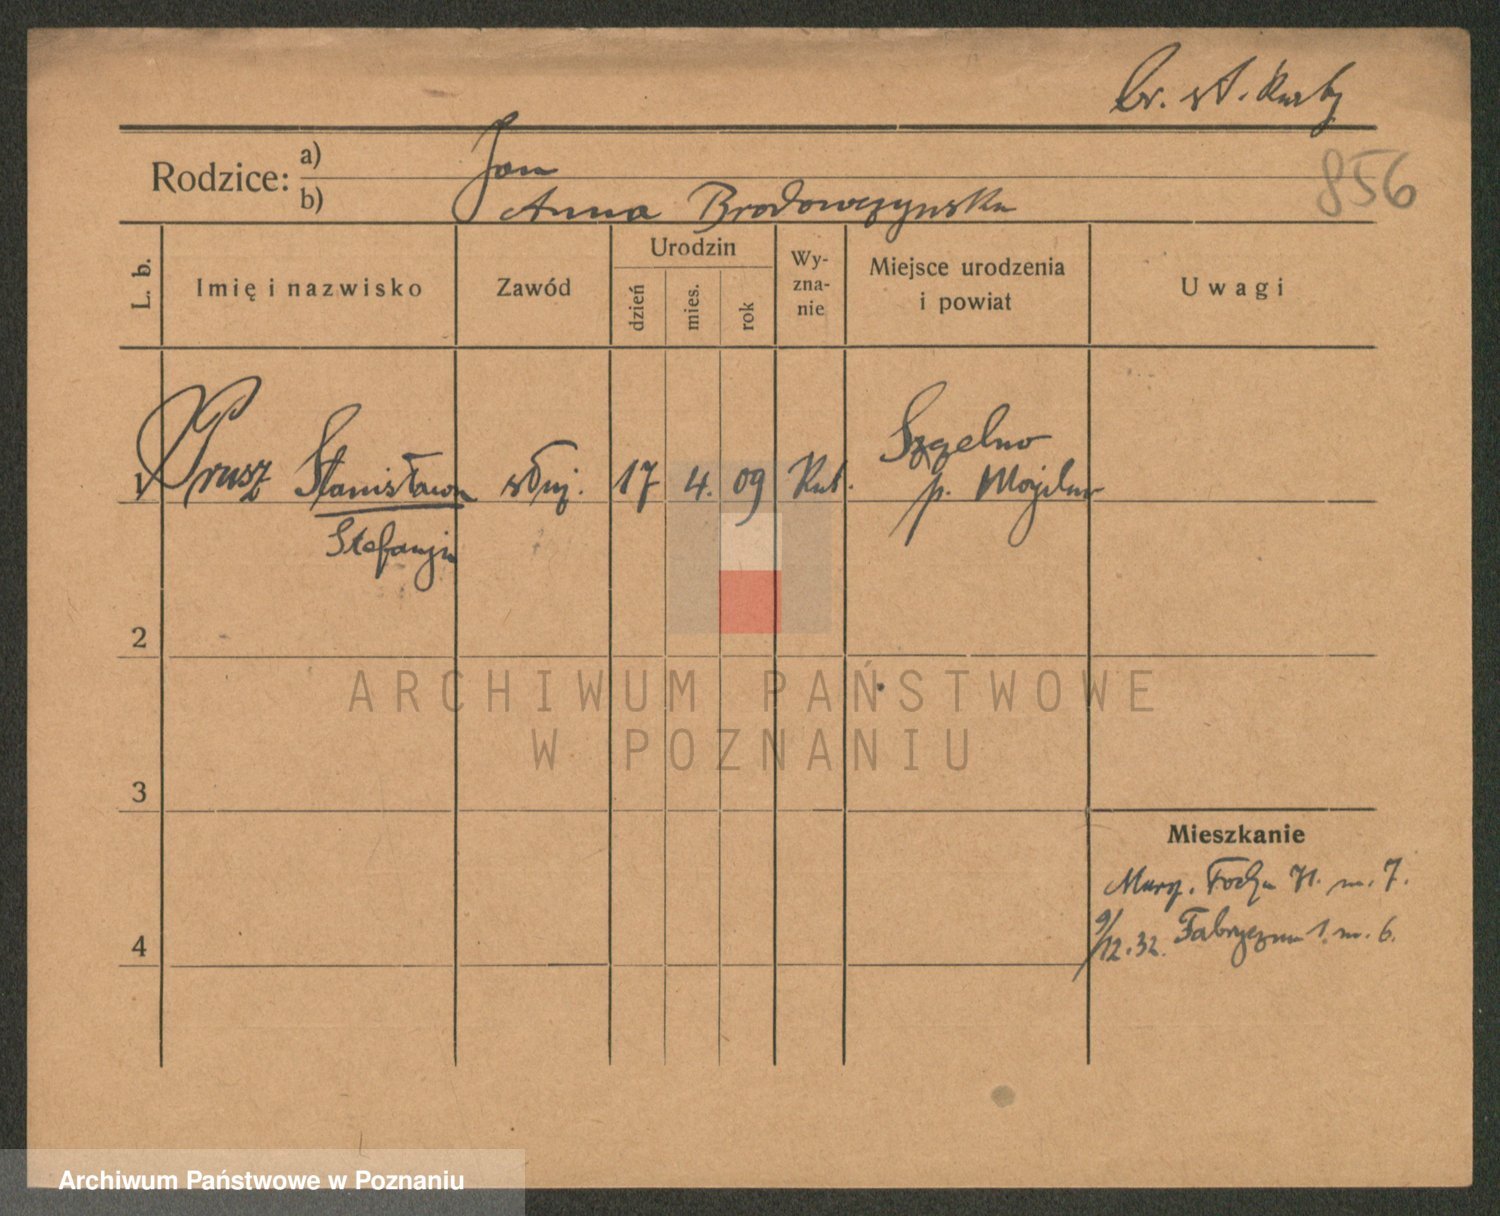 Rodzice: a) Jan
b) Anna Brodowczynska
856
L. b.
Imię i nazwisko
Zawód
Urodzin
dzień
mies.
rok
Wy-
zna-
nie
Miejsce urodzenia
i powiat
Uwagi
1 Prusz Stanisława służ. 17 4. 09 Kat. Szczelno
p. Mogilno
Stefanja
2
ARCHIWUM PAŃSTWOWE
W POZNANIU
3
Mieszkanie
Marsz. Focha 71. m. 7.
4
9/12.32. Fabryczna 1. m. 6.
Archiwum Państwowe w Poznaniu